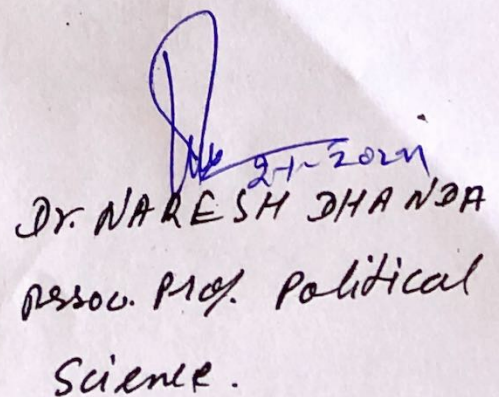 Dr. NARESH DHANDA
Assoc. Prof. Political
Science.